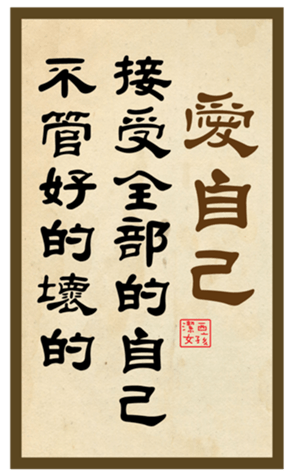 愛自己
接受全部的自己
不管好的壞的